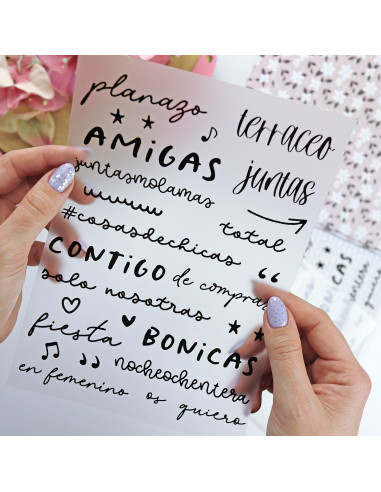 planazo
terraceo
AMiGAS
juntas
juntasmolamas
total
#cosasdechicas
CONTiGO de compras
solo nosotras
fiesta BONiCAS
nocheochentera
en femenino os quiero